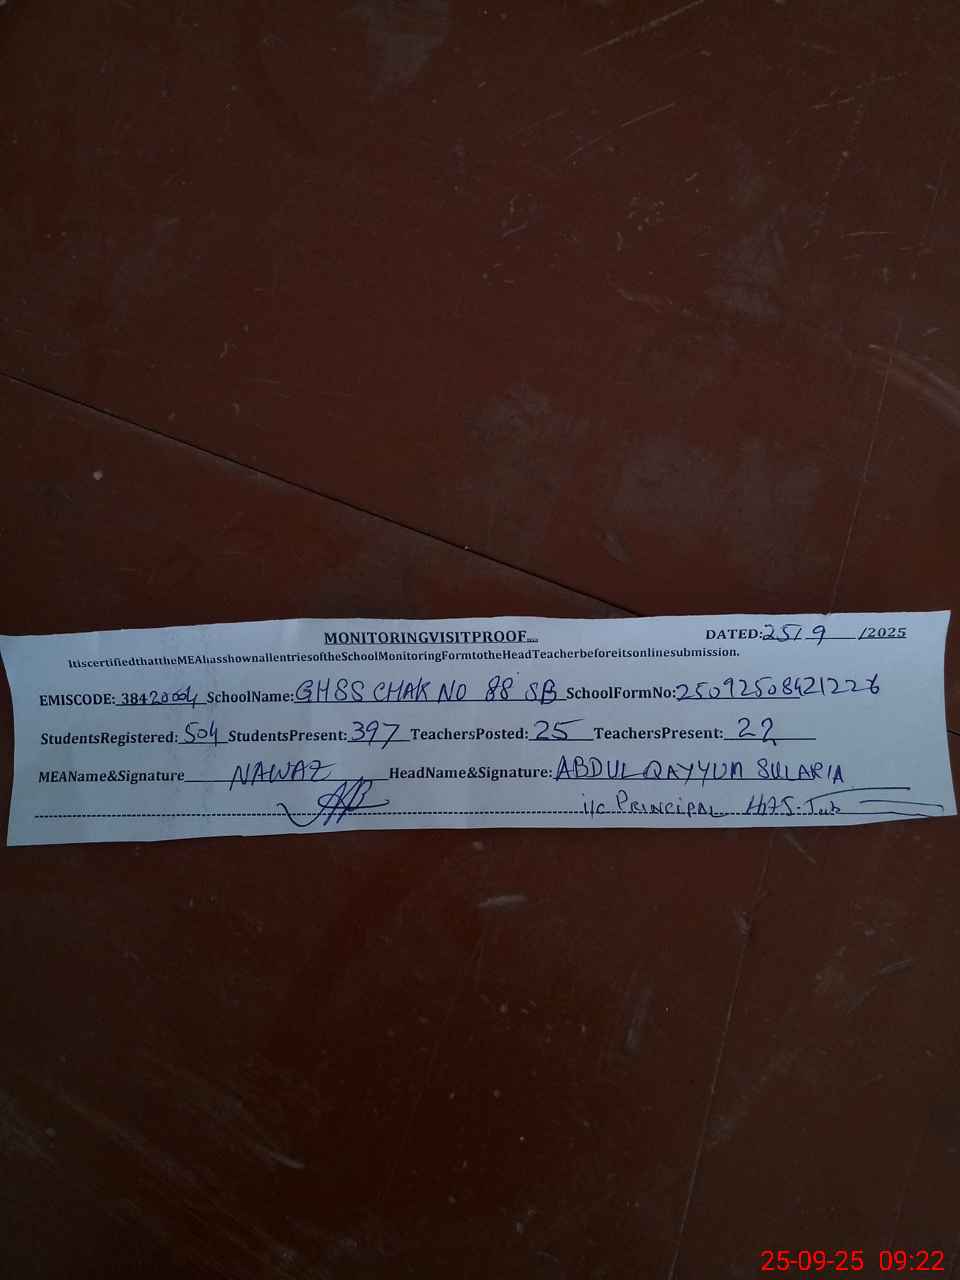 MONITORINGVISITPROOF.... DATED:25/9/2025
ItiscertifiedthattheMEAhasshownallentriesoftheSchoolMonitoringFormtotheHeadTeacherbeforeitsonlinesubmission.
EMISCODE: 38420004 SchoolName: GHSS CHAK NO 88 SB SchoolFormNo: 25092508421226
StudentsRegistered: 504 StudentsPresent: 397 TeachersPosted: 25 TeachersPresent: 22
MEAName&Signature NAWAZ HeadName&Signature: ABDUL QAYYUM SULARIA
i/c PRINCIPAL
25-09-25 09:22